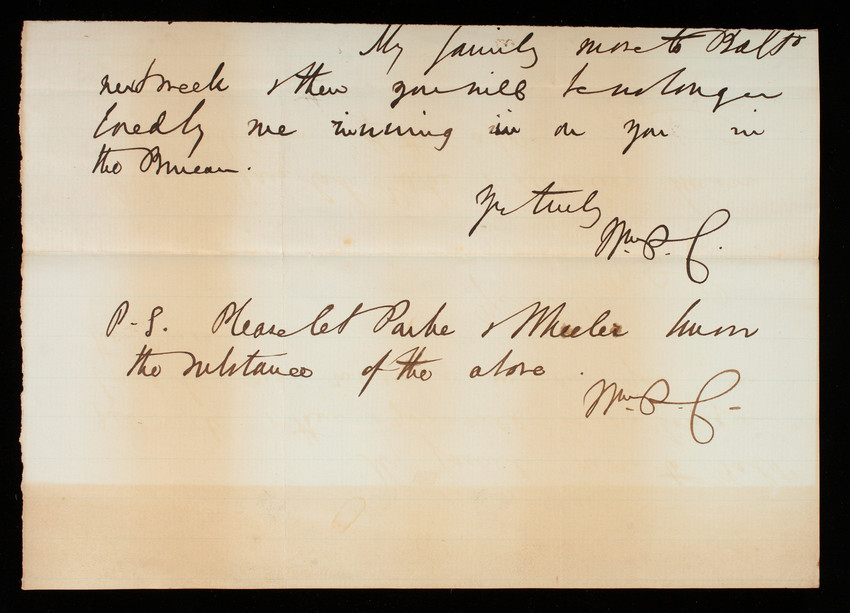 My family move to Balto
next week & then you will be no longer
bored by me running in on you in
the Bureau.
Yrs truly
Wm. P. C.
P-S. Please let Parke & Wheeler know
the substance of the above.
Wm. P. C-